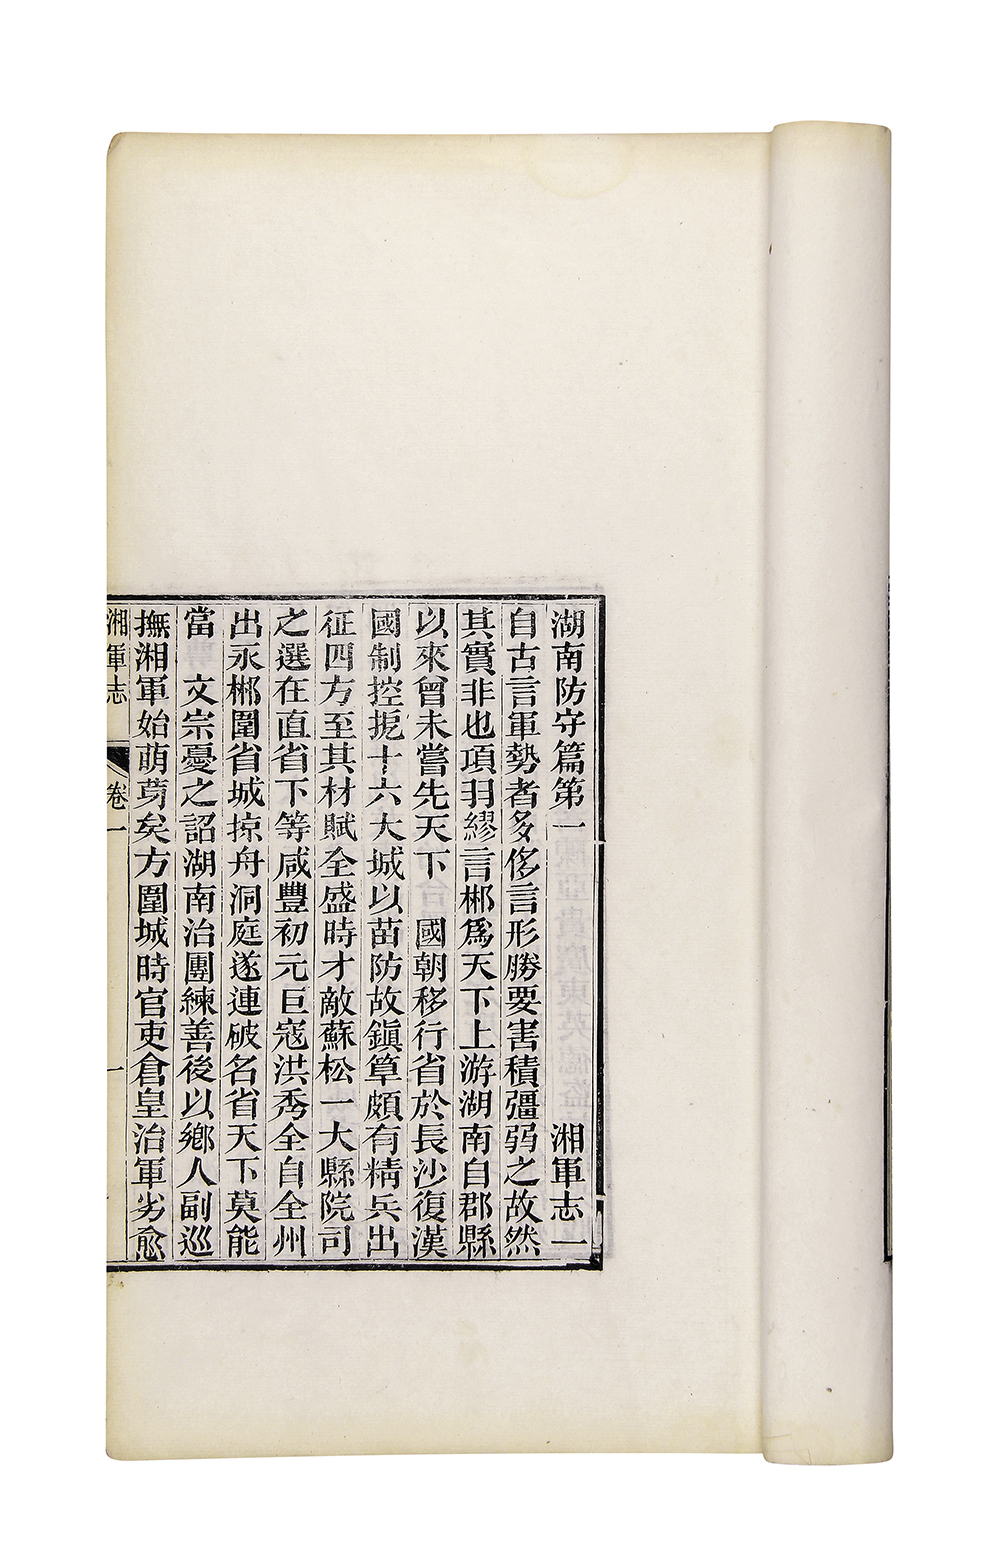 湖南防守篇第一 湘軍志一
自古言軍勢者多侈言形勝要害積彊弱之故然
其實非也項羽繆言郴爲天下上游湖南自郡縣
以來曾未嘗先天下 國朝移行省於長沙復漢
國制控扼十六大城以苗防故鎭筸頗有精兵出
征四方至其材賦全盛時才敵蘇松一大縣院司
之選在直省下等咸豐初元巨寇洪秀全自全州
出永郴圍省城掠舟洞庭遂連破名省天下莫能
當 文宗憂之詔湖南治團練善後以鄉人副巡
撫湘軍始萌芽矣方圍城時官吏倉皇治軍劣愈
湘軍志 卷一 一